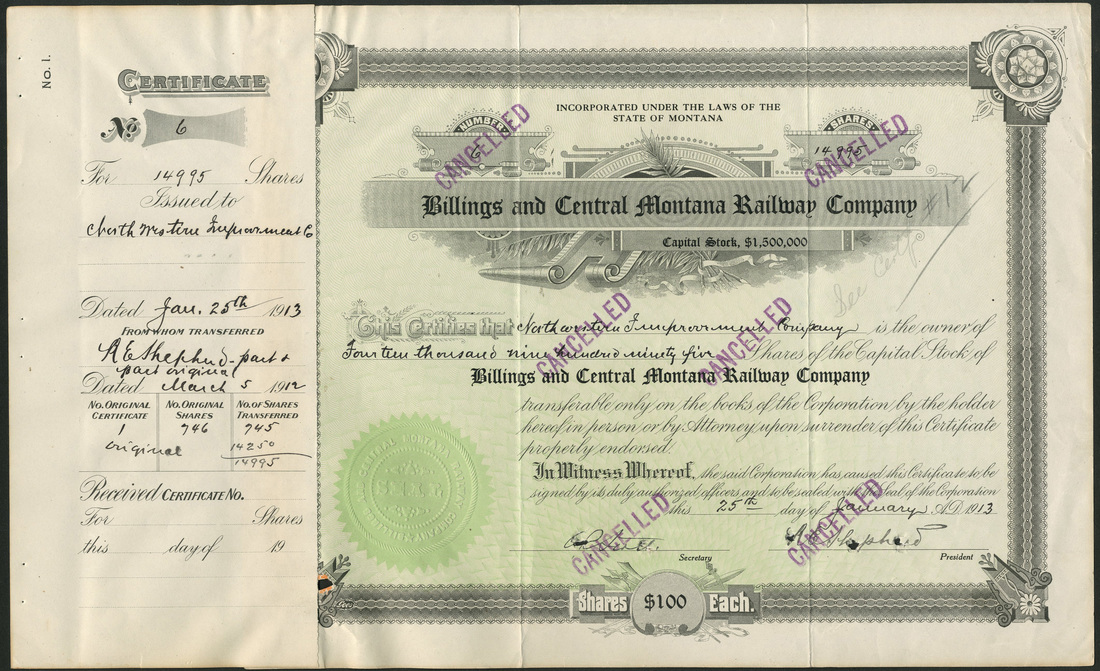 No. 1.
CERTIFICATE
No 6
For 14995 Shares
Issued to
North Western Improvment Co
Dated Jan. 25th 1913
FROM WHOM TRANSFERRED
R E Shepherd - part &
part original
Dated March 5 1912
NO. ORIGINAL CERTIFICATE
NO. ORIGINAL SHARES
NO. OF SHARES TRANSFERRED
1 746 745
original 14250
14995
Received CERTIFICATE NO.
For Shares
this day of 19
INCORPORATED UNDER THE LAWS OF THE
STATE OF MONTANA
NUMBER
6
SHARES
14995
CANCELLED
CANCELLED
Billings and Central Montana Railway Company
#12
Capital Stock, $1,500,000
See Certf
This Certifies that Northwestern Improvment Company is the owner of
Fourteen thousand nine hundred ninety five Shares of the Capital Stock of
Billings and Central Montana Railway Company
CANCELLED
CANCELLED
transferable only on the books of the Corporation by the holder
hereof in person or by Attorney upon surrender of this Certificate
properly endorsed.
In Witness Whereof, the said Corporation has caused this Certificate to be
signed by its duly authorized officers and to be sealed with the Seal of the Corporation
this 25th day of January A.D. 1913
CENTRAL MONTANA
SEAL
CANCELLED
CANCELLED
Shepherd
Secretary
President
Shares $100 Each.